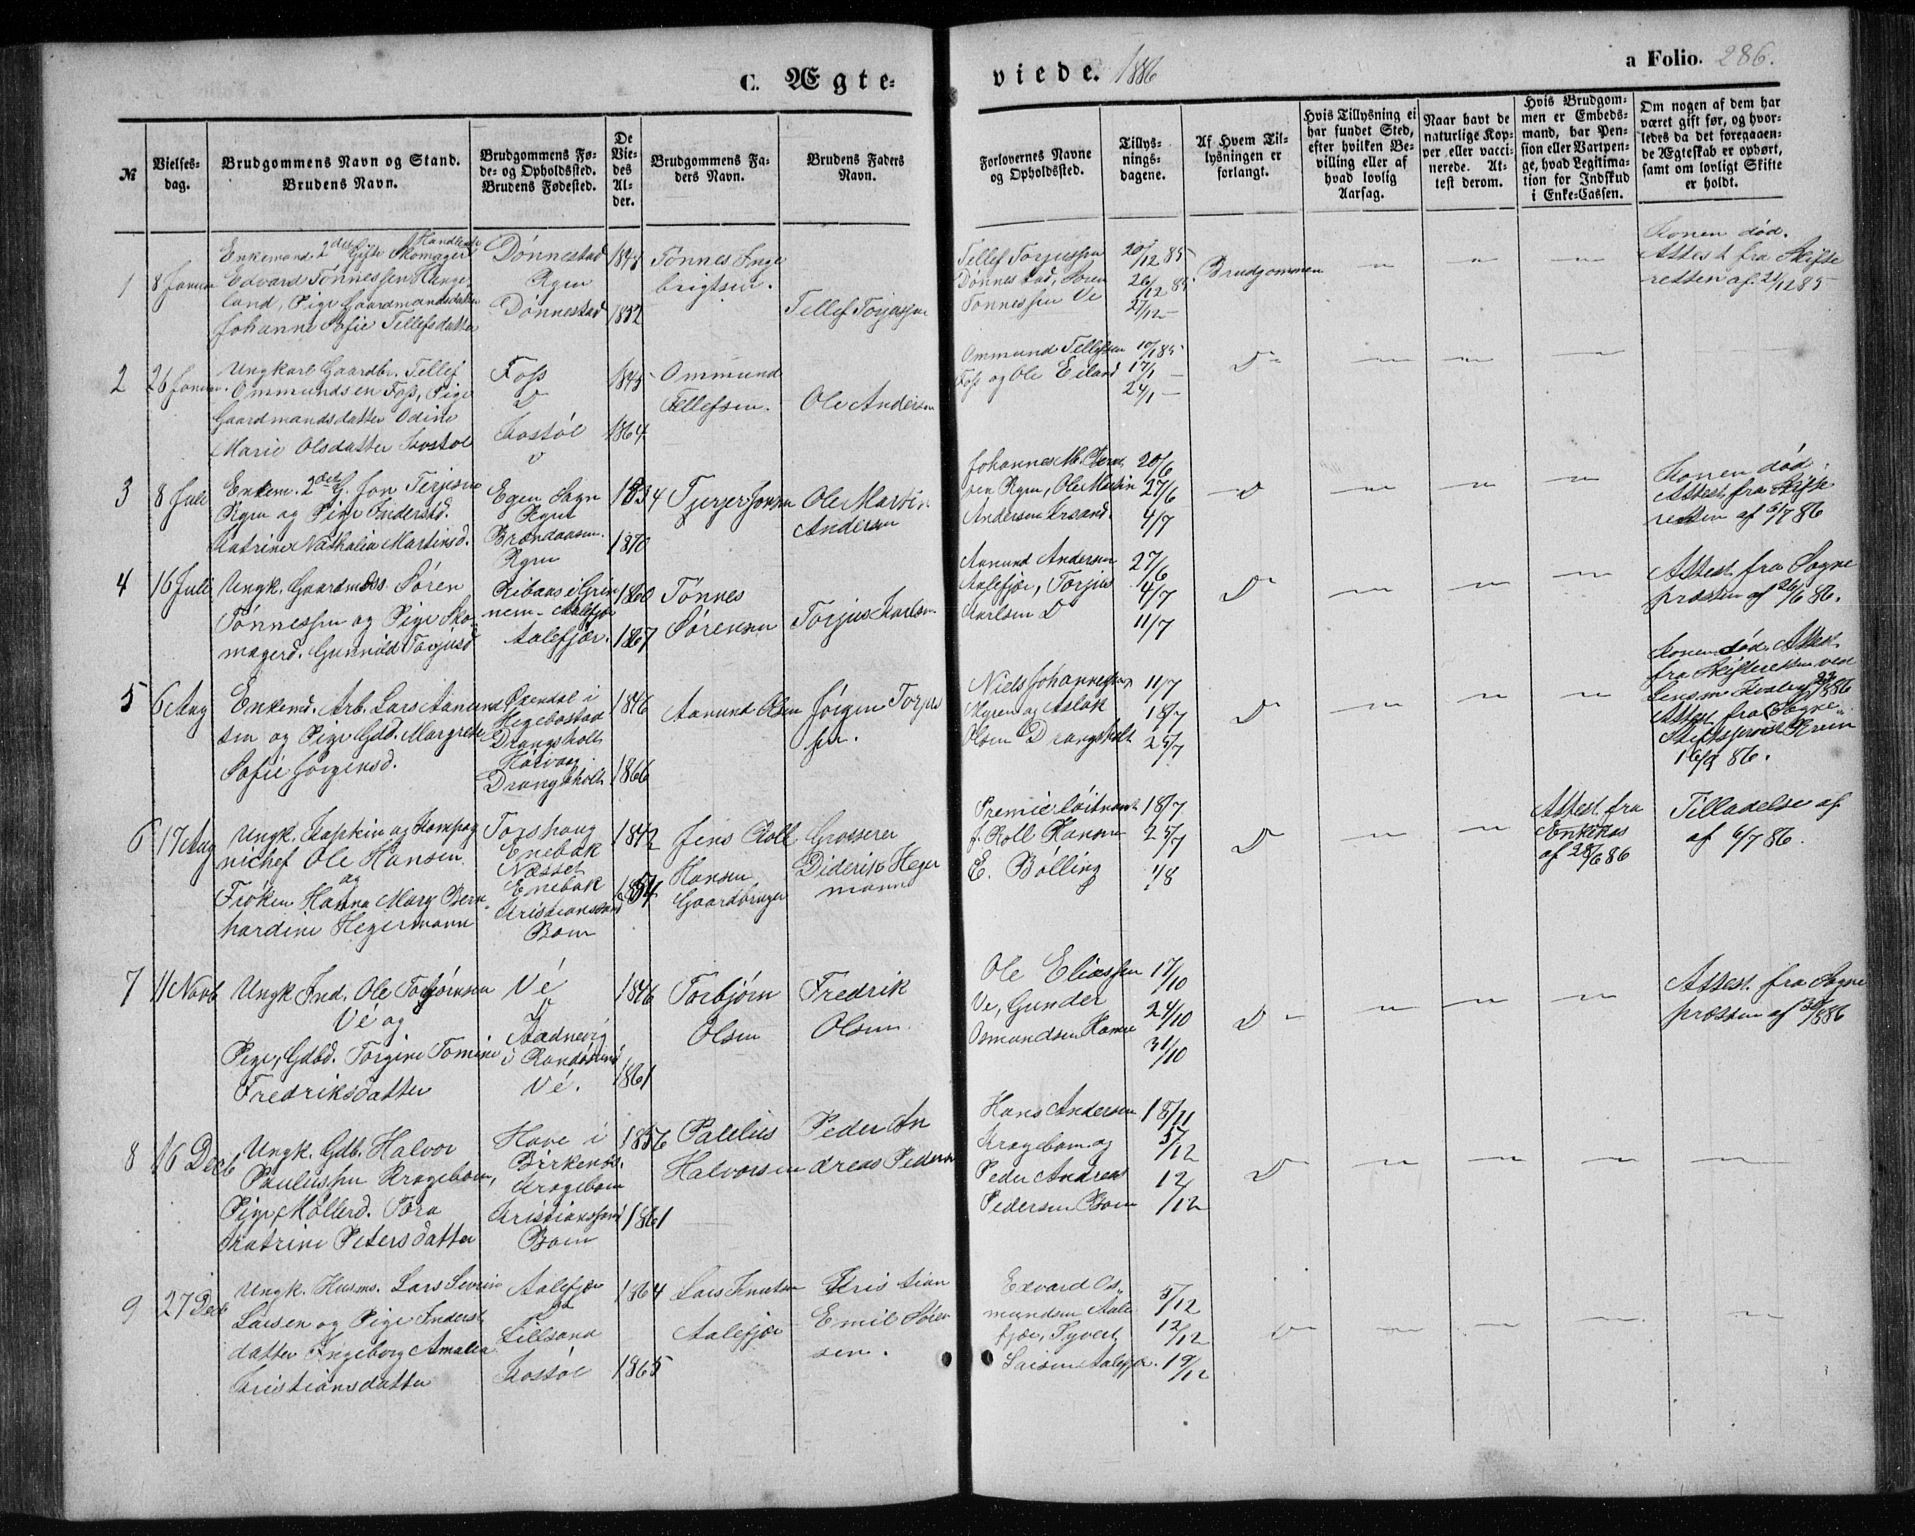 C. Ægte-
viede. 1886
a Folio. 286.
№
Vielses-
dag.
Brudgommens Navn og Stand.
Brudens Navn.
Brudgommens Fø-
de- og Opholdssted.
Brudens Fødested.
De
Vie-
des
Al-
der.
Brudgommens Fa-
ders Navn.
Brudens Faders
Navn.
Forlovernes Navne
og Opholdssted.
Tillys-
nings-
dagene.
Af Hvem Til-
lysningen er
forlangt.
Hvis Tillysning ei
har fundet Sted,
efter hvilken Be-
villing eller af
hvad lovlig
Aarsag.
Naar havt de
naturlige Kop-
per eller vacci-
nerede. At-
test derom.
Hvis Brudgom-
men er Embeds-
mand, har Pen-
sion eller Vartpen-
ge, hvad Legitima-
tion for Indskud
i Enke-Cassen.
Om nogen af dem har
været gift før, og hvor-
ledes da det foregaaen-
de Ægteskab er ophørt,
samt om lovligt Skifte
er holdt.
1
8 Januar
Enkemand 2den Gifte Skomager
Edvard Tønnessen Hauge
land, Pige Gaardmandsdatter
Johanne Sofie Tellefsdatter
Dønnestad
Rgen
Dønnestad
1852
Tønnes Inge
brigtsen.
Tellef Torjussen
Tellef Torjussen
Dønnestad, Søren
Tønnessen Ve
20/12 85
26/12 85
27/12 —
Brudgommen
Konen død.
Attest fra Skifte
retten af 21/12 85
2
26 Januar
Ungkarl Gaardbr. Tellef
Ommundsen Foss, Pige
Gaardmandsdatter Odine
Marie Olsdatter Kostøl
Foss
D
Kostøl
1845
1864
Ommund
Tellefsen.
Ole Andersen
Ommund Tellefsen
Foss og Ole Eiland
10/1 85
17/1 —
24/1 —
D
3
8 Juli
Enkem. 2den G. Jon Terjesen
Rgen og Pige Inderstd.
Katrine Nathalia Martinsd.
Egen Sogn
Rgen
Brændaasen
Rgen
1834
1870
Terjer Jonsen
Ole Martin
Andersen
Rgen, Ole Martin
Andersen
20/6
27/6
4/7
D
Konen død.
Attest fra Skifte
retten af 5/7 86
4
16 Juli
Ungk. Gaardmds. Søren
Tønnessen og Pige Sko
magerd. Gunnild Torjusd
Ribaas i Grin
nem- Aalefjær
Aalefjær.
1860
1867
Tønnes
Sørensen
Torjus Karlsen
Aanund Andersen
Aalefjær, Torjus
Karlsen D
27/6
4/7
11/7
D
Attest fra Sogne
præsten af 26/6 86.
5
6 Aug
Enkemd. Arb. Lars Aanund
sen og Pige Gdb. Margrethe
Sofie Jørgensd.
Oxendal i
Hegebostad
Drangsholt
Høivaag
Drangsholt
1846
1866
Aanund Olsen
Jørgen Torjus
sen.
Niels Johannessen
Myren og Aslak
Olsen Drangsholt
11/7
18/7
25/7
D
Konen død. Attest
fra Skifteretten ved
Attest fra Sogne
86.
6
17 Aug
Ungk. Kaptein og Kompag
nichef Ole Hansen
og
Frøken Hanna Mary Bern
hardine Hegermann
Enebak
Næsset
Enebak
Kristianssand
Boen
1842
1854
Jens Roll
Hansen
Gaardbruger
Grosserer
Diderik Heger
mann
Premierløitnant
J. Roll Hansen
E. Bølling
18/7
25/7
1/8
D
Attest fra
Enkekas
af 28/6 86
Tilladelse af
af 6/7 86.
7
11 Novb
Ungk Ind. Ole Torbjørnsen
Vé og
Pige, Gdbd. Torgine Tomine
Fredriksdatter
Vé
D
Aadnevig
i Randøsund
Vé.
1846
1861
Torbjørn
Olsen
Fredrik
Olsen
Ole Eliassen
Ve, Gunder
Osmundsen Hamre
17/10
24/10
31/10
D
Attest fra Sogne
præsten af 30/8 86
8
16 Decb
Ungk. Gdb. Halvor
Paulussen Kragebom,
Pige Møllerd. Tora
Katrine Petersdatter
Have i
Birkenes.
Kragebom
Kristianssand
Boen
1856
1861
Paulus
Halvorsen
Peder An
dreas Pedersen
Hans Andersen
Kragebom og
Peder Andreas
Pedersen Boen
18/11
5/12
12/12
D
9
27 Decb
Ungk. Husms. Lars Severin
Larsen og Pige Inderst
datter Ingeborg Amalia
Kristiansdatter
Aalefjær
Lillsand
Kostøl
1864
1865
Lars Knutsen
Aalefjær
Kristian
Emil Søren
sen.
Edvard Os-
mundsen Aale
fjær, Syvert
Larsen Aalefjær.
5/12
12/12
19/12
D